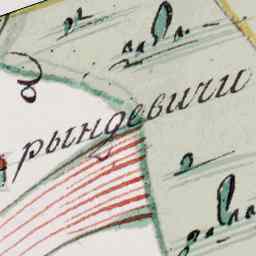 рындевичи